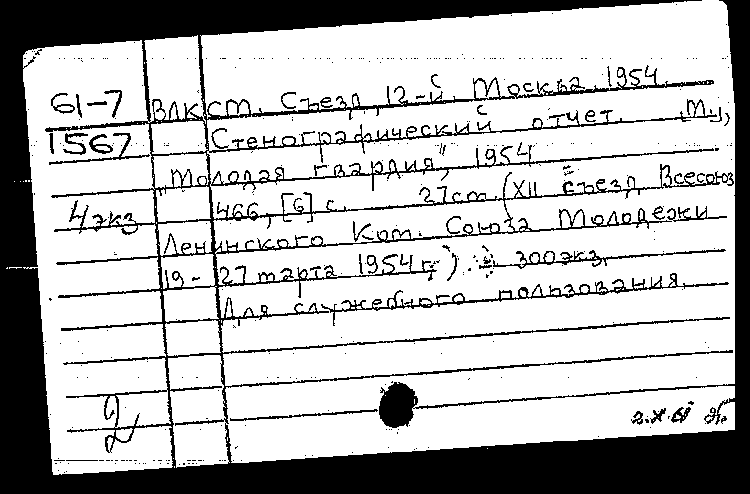 61-7
1567
ВЛКСМ. Съезд, 12-й. Москва. 1954.
Стенографический отчет. [М.],
"Молодая гвардия", 1954
4 экз
466, [6] с. 27см. (XII съезд Всесоюз
Ленинского Ком. Союза Молодежи
19-27 марта 1954 г.) 300 экз.
Для служебного пользования.
2
2.X.61